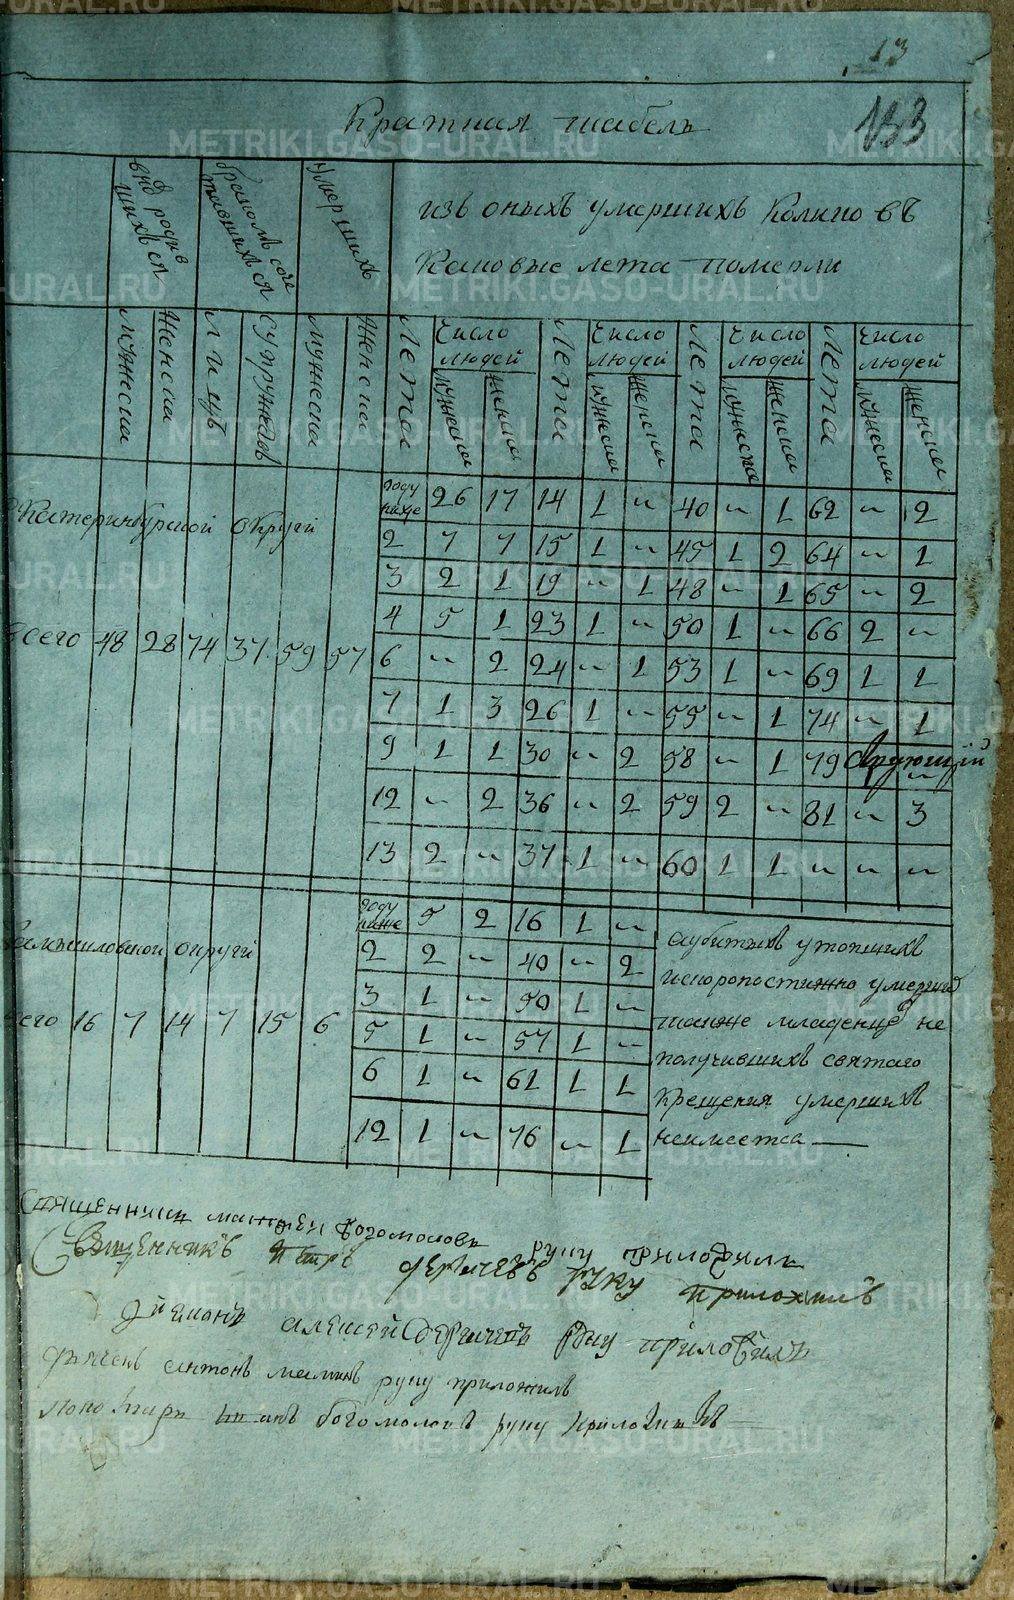 13
133
Краткая табель
въ родившихся
бракомъ сочетавшихся
умершихъ
изъ оныхъ умершихъ колико въ
каковые лета померли
мужеска
женска
лицъ
супружествъ
мужеска
женска
Лета
Число людей
мужеска
женска
Лета
Число людей
мужеска
женска
Лета
Число людей
мужеска
женска
Лета
Число людей
мужеска
женска
Екатеринбурской округи
всего 48 28 74 37 59 57
году ниже 26 17 14 1 „ 40 „ 1 62 „ 2
2 7 7 15 1 „ 45 1 2 64 „ 1
3 2 1 19 „ 1 48 „ 1 65 „ 2
4 5 1 23 1 „ 50 1 „ 66 2 „
6 „ 2 24 „ 1 53 1 „ 69 1 1
7 1 3 26 1 „ 55 „ 1 74 „ 1
9 1 1 30 „ 2 58 „ 1 79 „
12 „ 2 36 „ 2 59 2 „ 81 „ 3
13 2 „ 37 1 „ 60 1 1 „ „ „
Камышловской округи
всего 16 7 14 7 15 6
году ниже 5 2 16 1 „
2 2 „ 40 „ 2
3 1 „ 50 1 „
5 1 „ 57 1 „
6 1 „ 61 1 1
12 1 „ 76 „ 1
аубитыхъ утопшихъ
искоропостижно умерших
также младенцов не
получившихъ святаго
крещения умершихъ
неимеетса
Священникъ Матфей Богомоловъ руку приложилъ
Священникъ Петръ Дерячевъ руку приложилъ
Дйяконъ Алексей Дерячевъ руку приложилъ
Дьячекъ Антонъ руку приложилъ
Понамарь Богомоловъ руку приложилъ
METRIKI.GASO-URAL.RU